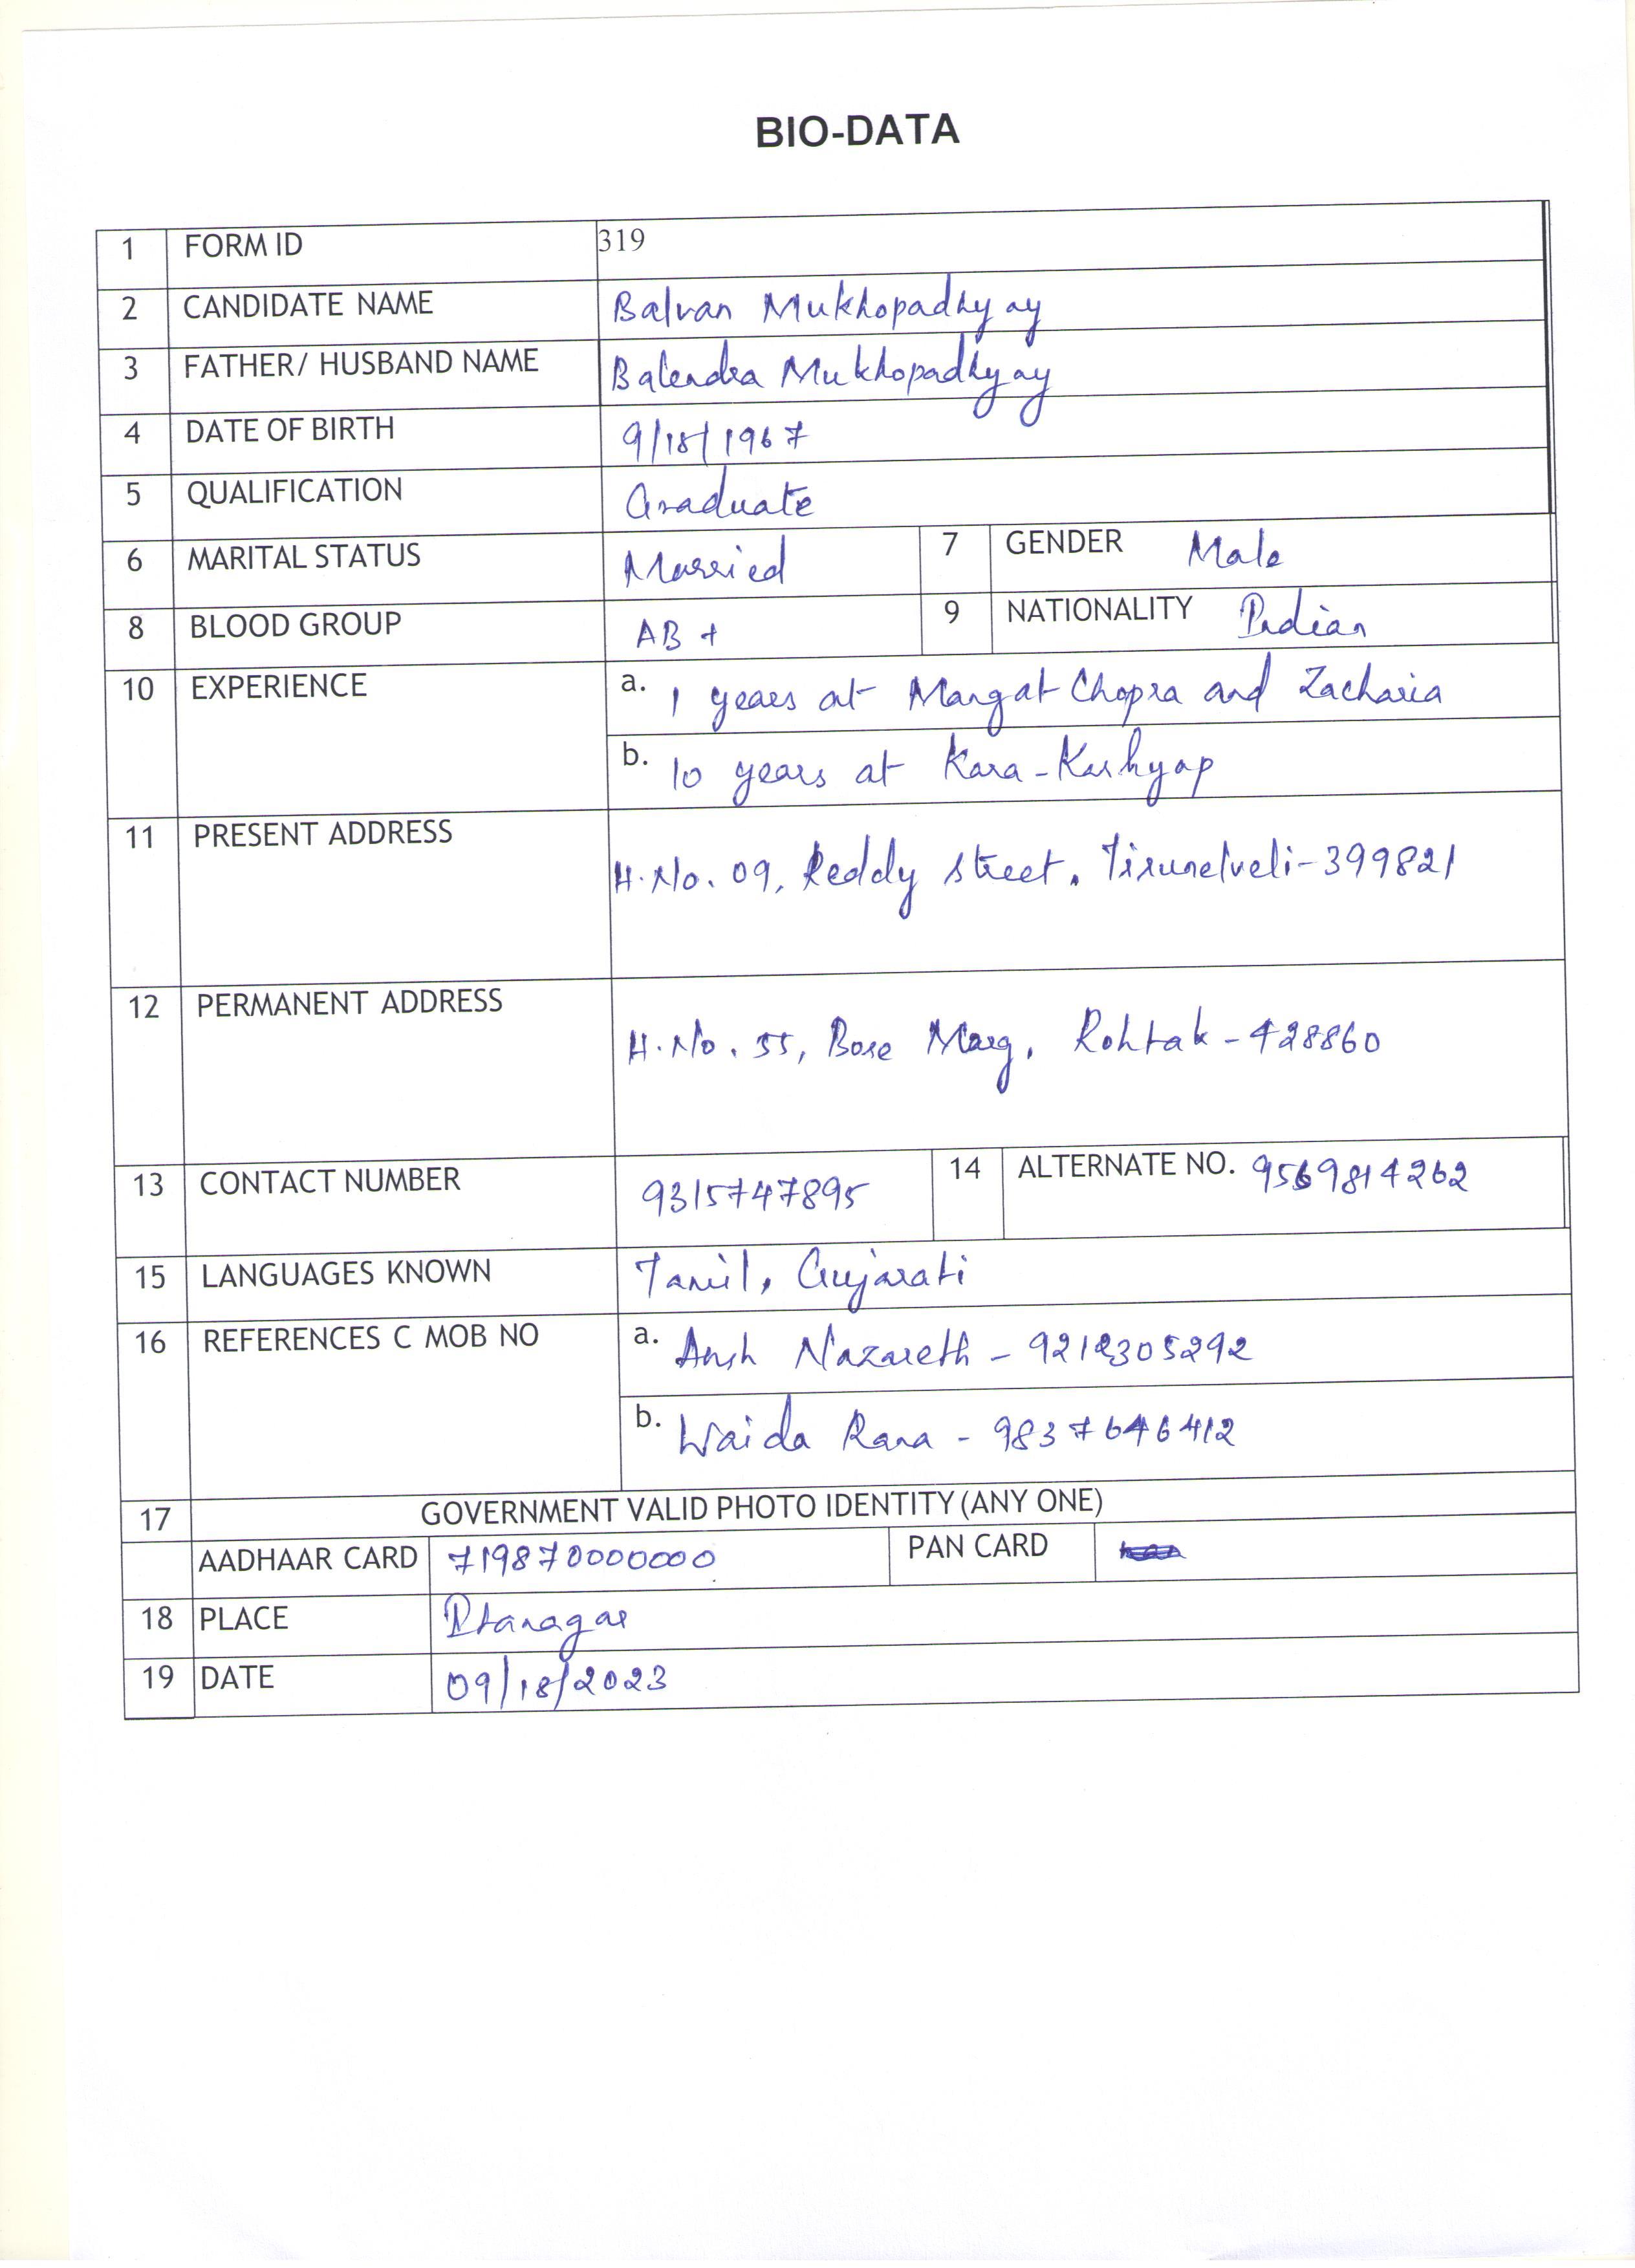 BIO-DATA
1 FORM ID 319
2 CANDIDATE NAME Balvan Mukhopadhyay
3 FATHER/ HUSBAND NAME Balendra Mukhopadhyay
4 DATE OF BIRTH 9/18/1967
5 QUALIFICATION Graduate
6 MARITAL STATUS Married 7 GENDER Male
8 BLOOD GROUP AB + 9 NATIONALITY Indian
10 EXPERIENCE a. 1 years at Mangat Chopra and Zacharia
b. 10 years at Kara-Kashyap
11 PRESENT ADDRESS H.No. 09, Reddy Street, Tirunelveli-399821
12 PERMANENT ADDRESS H.No. 55, Bose Marg, Rohtak-428860
13 CONTACT NUMBER 9315747895 14 ALTERNATE NO. 9569814262
15 LANGUAGES KNOWN Tamil, Gujarati
16 REFERENCES C MOB NO a. Ansh Nazareth - 9212305292
b. Waida Rana - 9837646412
17 GOVERNMENT VALID PHOTO IDENTITY (ANY ONE)
AADHAAR CARD 719870000000 PAN CARD
18 PLACE Itanagar
19 DATE 09/18/2023